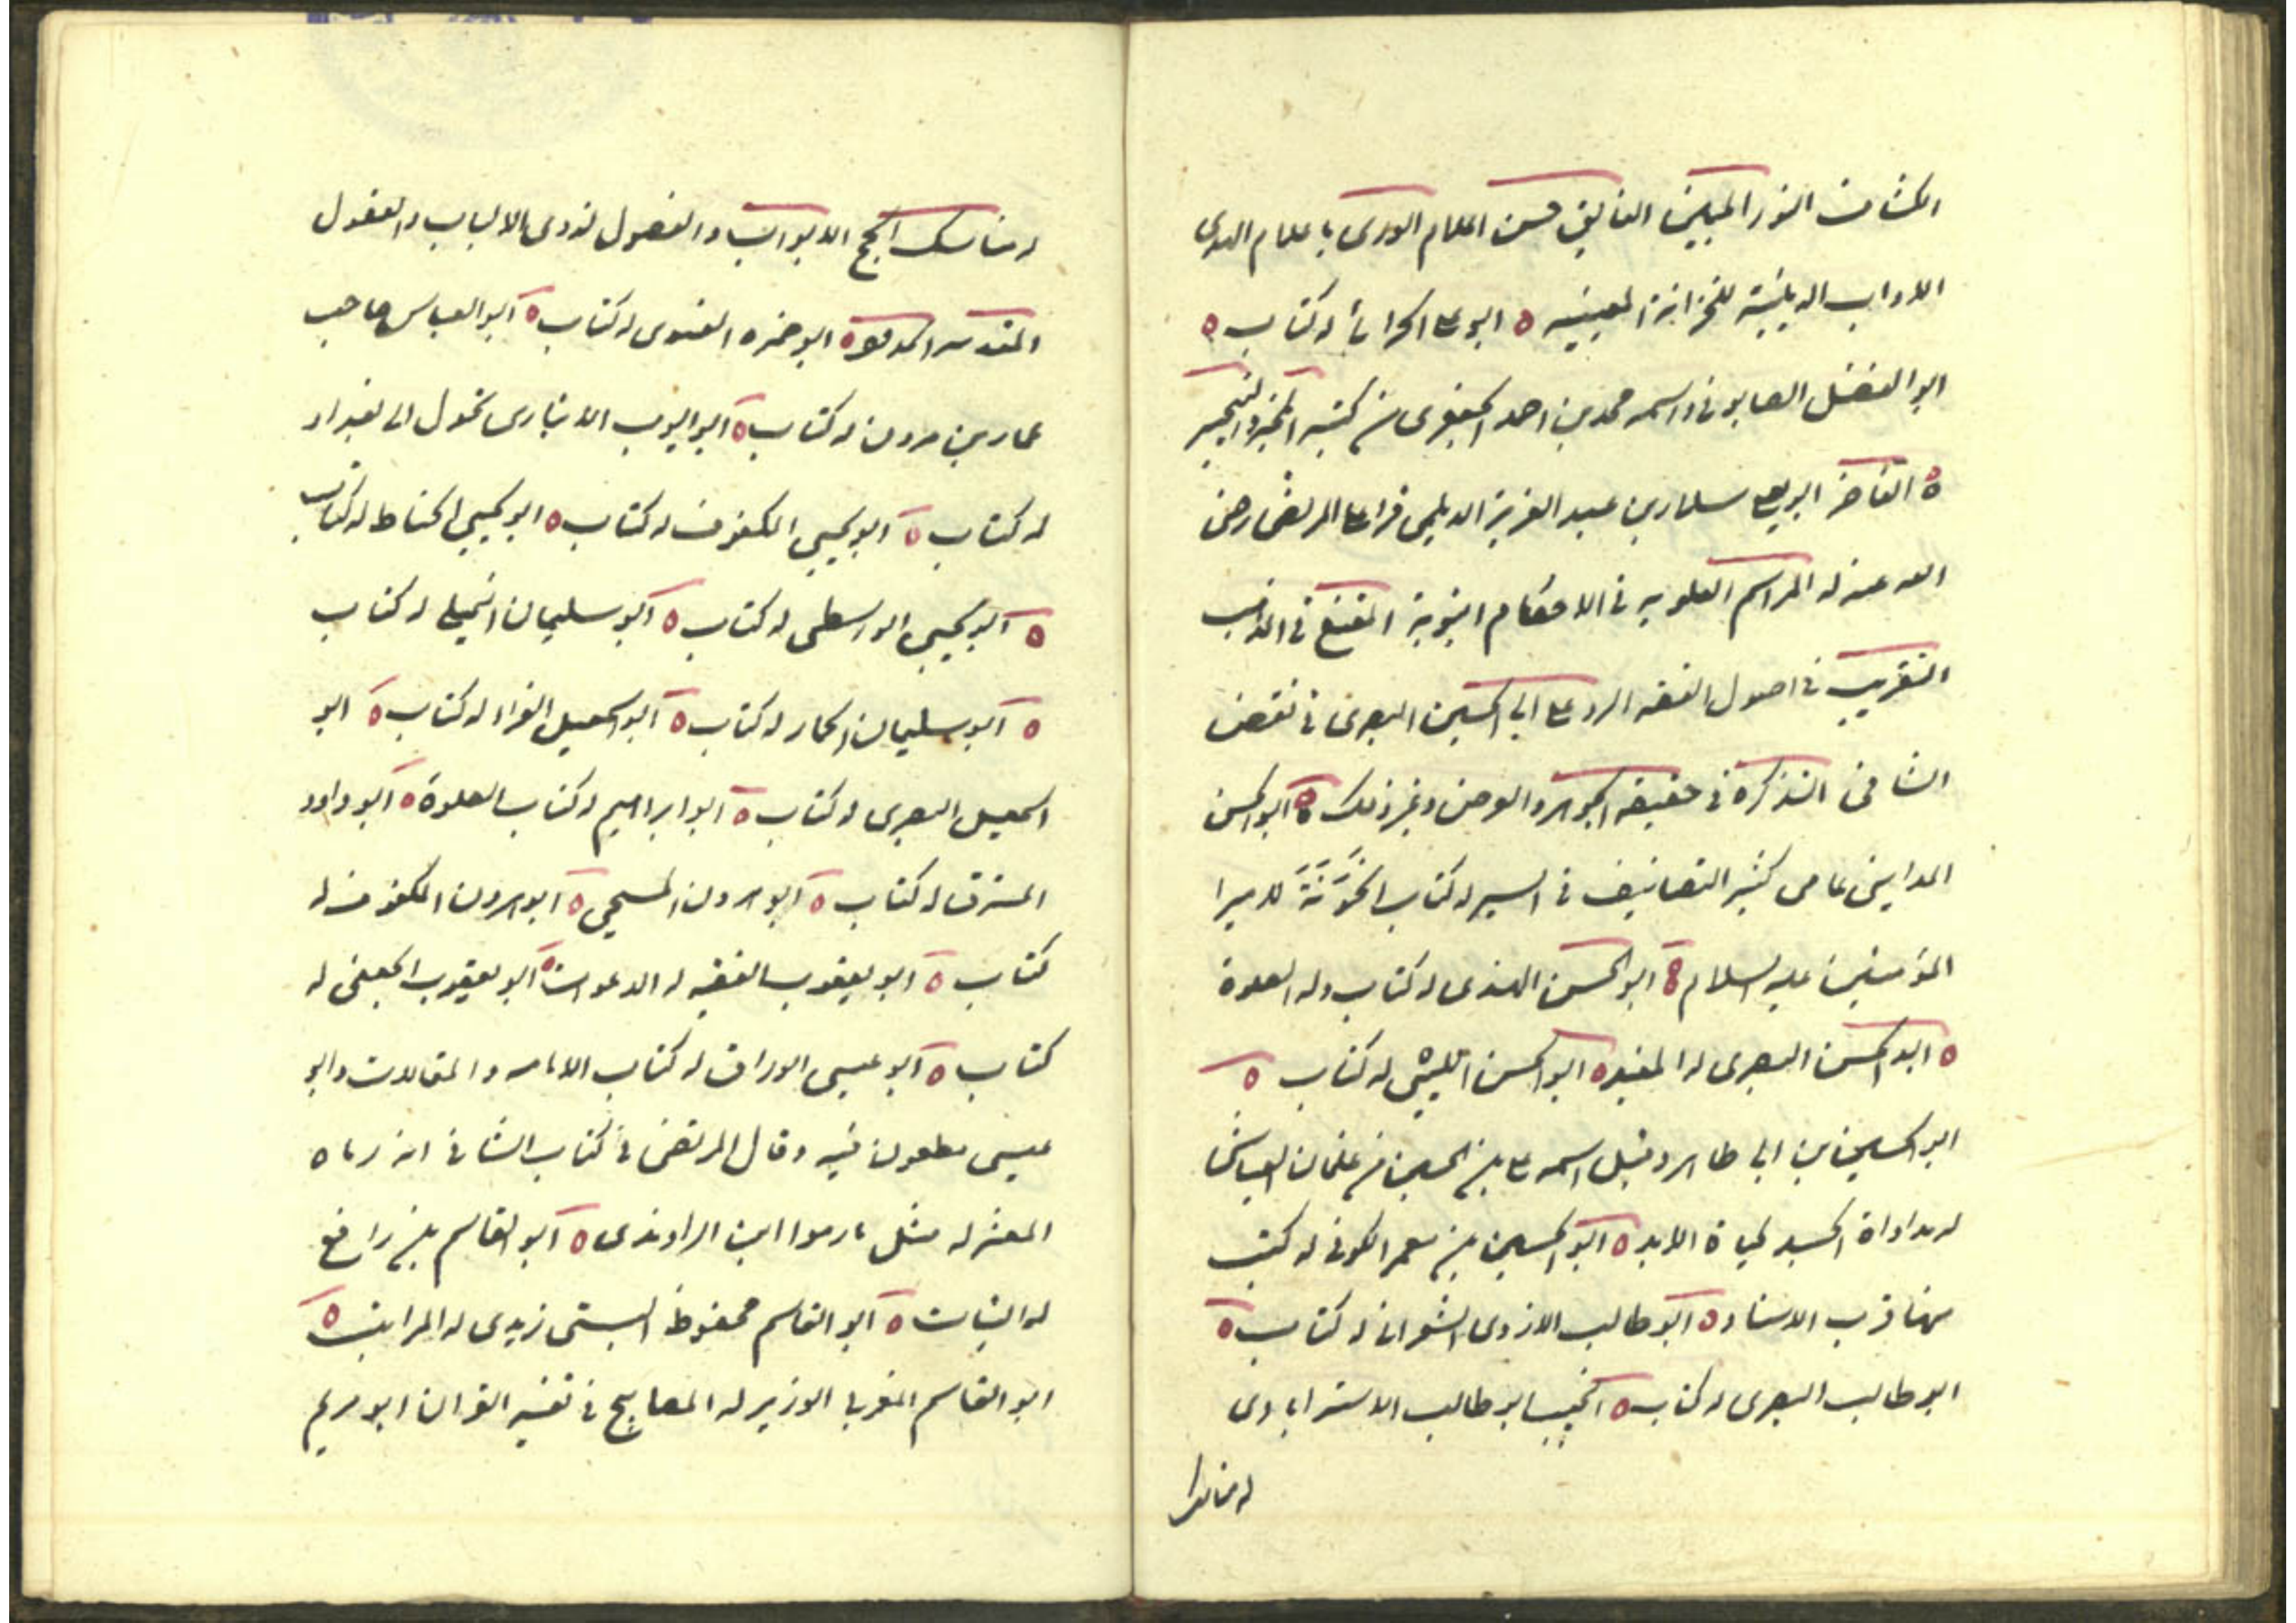 الكشاف النور المبين الفايق حسن اعلام الورى باعلام الهدى
الاداب الدينية للخزانة المعينيه ه ابو على الحرانى له كتاب ه
ابو الفضل الصابونى واسمه محمد بن احمد الجعفرى من كتبه المخبر والتخيير
ه القاضى ابو يعلى سلار بن عبد العزيز الديلمى قرا على المرتضى رضى
الله عنه له المراسم العلويه فى الاحكام النبوية المقنع فى المذهب
التقريب فى اصول الفقه الرد على ابى الحسين البصرى فى نقض
الشافى التذكرة فى حقيقه الجوهر والعرض وغير ذلك ه ابو الحسن
المداينى عامى كثير التصانيف فى السير له كتاب الخَوَنَةَ لامير ا
المؤمنين عليه السلام ه ابو الحسن الهندى له كتاب وله الصلوة
ه ابو الحسن البصرى له المفيد ه ابو الحسن الليثى له كتاب ه
ابو الحسين بن ابى طاهر وقيل اسمه على بن الحسين من غلمان العياشى
له مداواة الجسد لحياة الابد ه ابو الحسين بن معمر الكوفى له كتب
منها قرب الاسناد ه ابو طالب الازدى الشعرانى له كتاب ه
ابو طالب البصرى له كتاب ه النجيب ابو طالب الاسترابادى
له مناسك
له مناسك الحج الابواب والفصول لذوى الالباب والعقول
المقدمه ه ابو حمزه الغنوى له كتاب ه ابو العباس صاحب
عمار بن مروان له كتاب ه ابو ايوب الانبارى تحول الى بغداد
له كتاب ه ابو يحيى المكفوف له كتاب ه ابو يحيى الحناط له كتاب
ه ابو يحيى الواسطى له كتاب ه ابو سليمان الجبلى له كتاب
ه ابو سليمان الحمار له كتاب ه ابو اسمعيل الفراء له كتاب ه ابو
اسمعيل البصرى له كتاب ه ابو ابراهيم له كتاب الصلوة ه ابو داود
المسترق له كتاب ه ابو هرون السنجى ه ابو هرون المكفوف له
كتاب ه ابو يعقوب الفقيه له الدعوات ه ابو يعقوب الجعفى له
كتاب ه ابو عيسى الوراق له كتاب الامامه والمقالات وابو
عيسى مطعون فيه وقال المرتضى فى كتاب الشافى انه رماه
المعتزله مثل ما رموا ابن الراوندى ه ابو القاسم بن رافع
له البنات ه ابو القاسم محفوظ البستى زيدى له المراتب ه
ابو القاسم المغربى الوزير له المصابيح فى تفسير القران ابو مريم